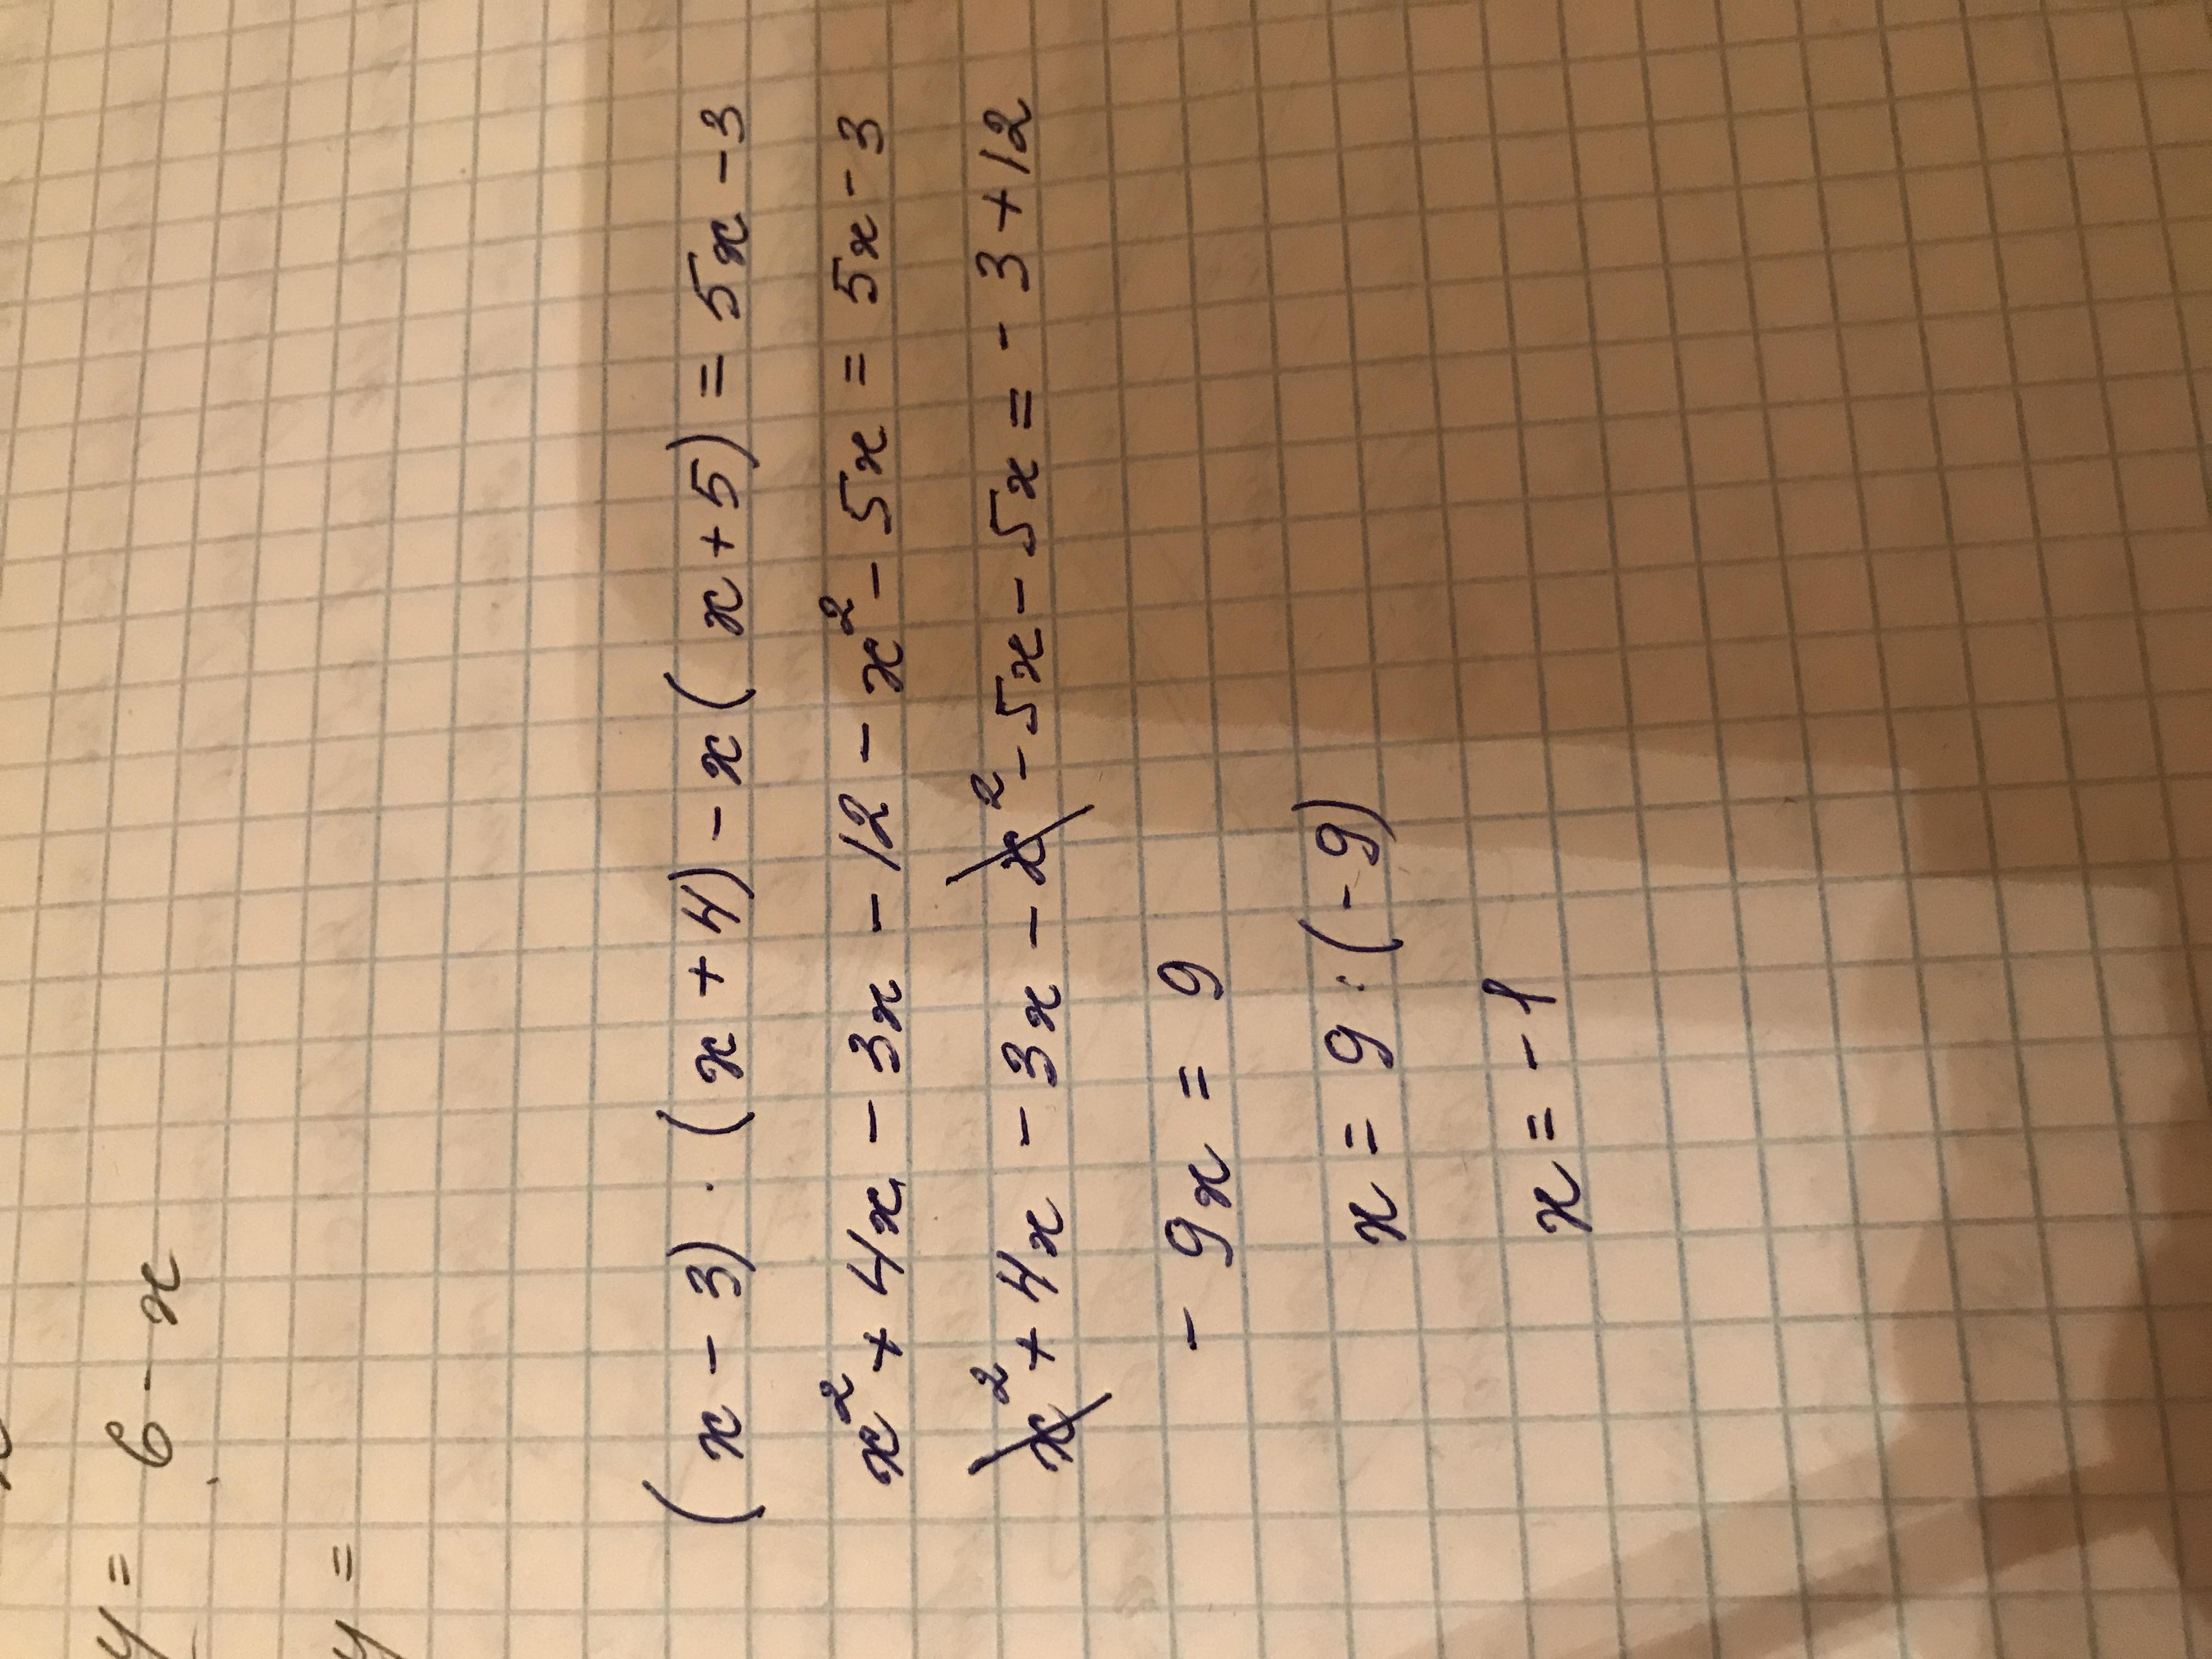 y = 6 - x
y =
(x - 3) · (x + 4) - x (x + 5) = 5x - 3
x² + 4x - 3x - 12 - x² - 5x = 5x - 3
x² + 4x - 3x - x² - 5x - 5x = - 3 + 12
- 9x = 9
x = 9 : (- 9)
x = - 1